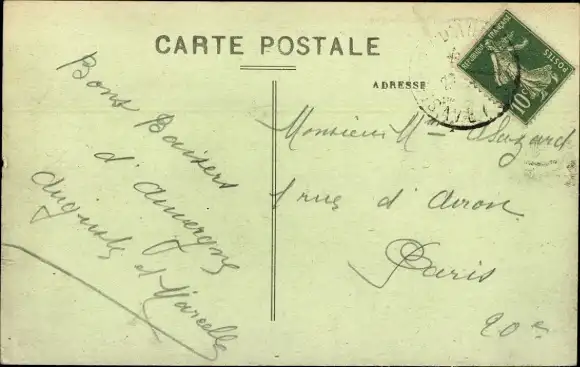 CARTE POSTALE
ADRESSE
Bons Baisers
d'Auvergne
et Marcelle
Monsieur M
1 rue d'Avron
Paris
20e
REPUBLIQUE FRANÇAISE
POSTES
10c